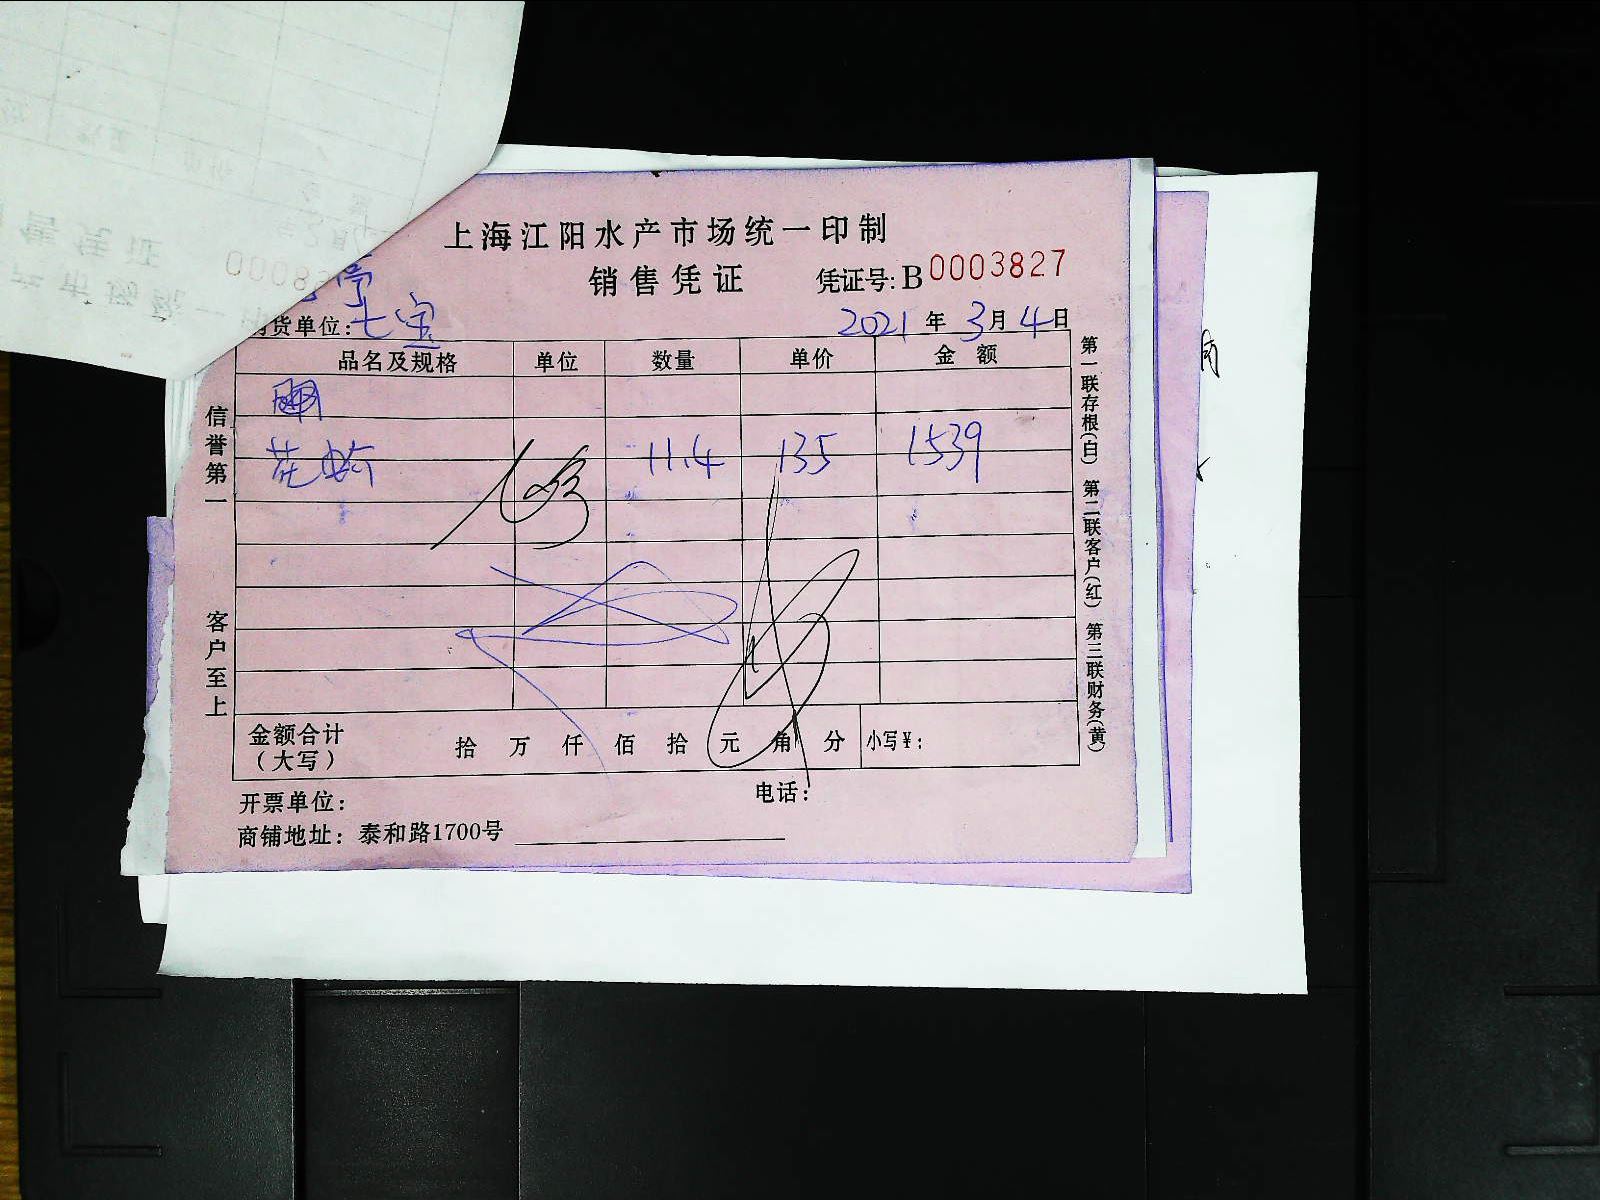 上海江阳水产市场统一印制
销售凭证 凭证号:B0003827
货单位:七宝 2021年3月4日
品名及规格 单位 数量 单价 金额
花 11.4 135 1539
金额合计(大写) 拾 万 仟 佰 拾 元 角 分 小写¥:
开票单位: 电话:
商铺地址:泰和路1700号
信誉第一 客户至上
第一联存根(白) 第二联客户(红) 第三联财务(黄)